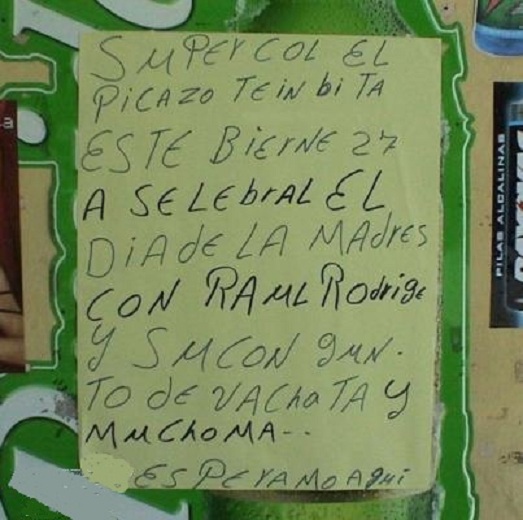 SuPERCOL EL
PiCAZO TEiN bi TA
ESTE BiErNE 27
A SELEbrAL EL
DiA dE LA MAdrES
CON RAuL ROdrigE
y SuCON guN.
TO dE VAChATA y
MuChoMA--
ESPERAMO Aqui
PILAS ALCALINAS